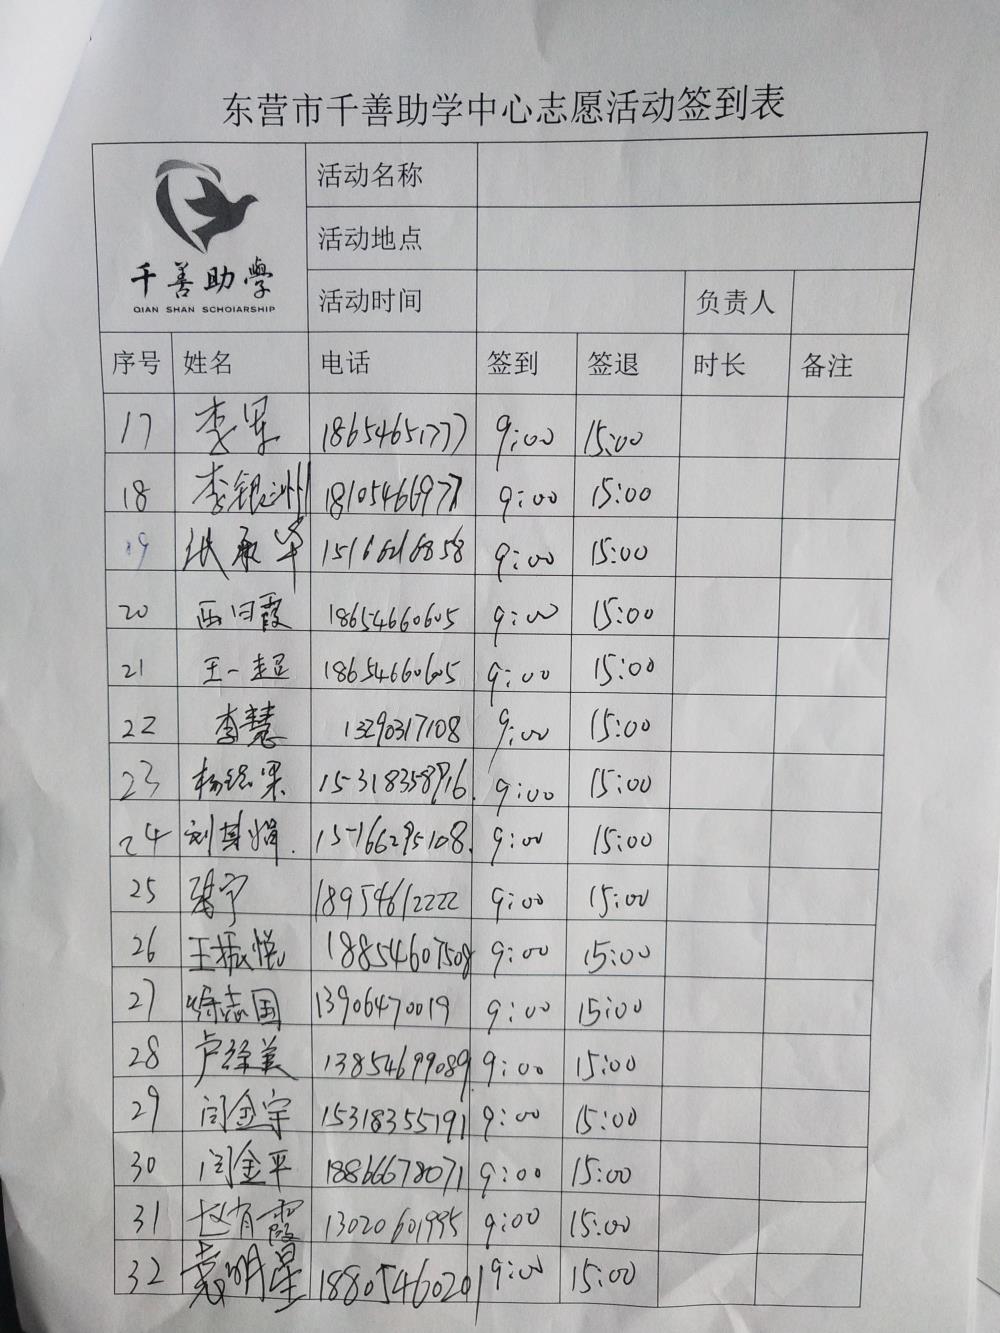 东营市千善助学中心志愿活动签到表
千善助學
QIAN SHAN SCHOIARSHIP
活动名称
活动地点
活动时间 负责人
序号 姓名 电话 签到 签退 时长 备注
17 李军 18654651777 9:00 15:00
18 李银洲 18105466977 9:00 15:00
19 15166216858 9:00 15:00
20 西日霞 18654660605 9:00 15:00
21 王一超 18654660605 9:00 15:00
22 李慧 13290317108 9:00 15:00
23 15318358916 9:00 15:00
24 刘其娟 15166295108 9:00 15:00
25 18954612222 9:00 15:00
26 王振悦 18854607508 9:00 15:00
27 徐志国 13906470019 9:00 15:00
28 卢徐美 13854699089 9:00 15:00
29 闫金宇 15318355191 9:00 15:00
30 闫金平 18866678071 9:00 15:00
31 赵有霞 13020601995 9:00 15:00
32 袁明星 18805460201 9:00 15:00